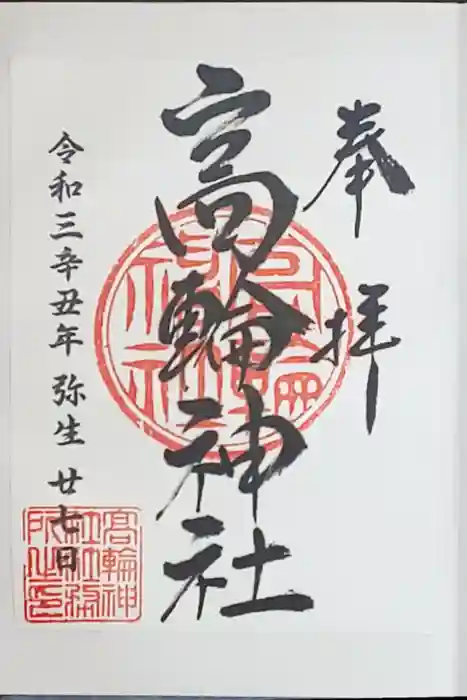 奉拝
高輪神社
令和三辛丑年 弥生 廿七日
高輪神社